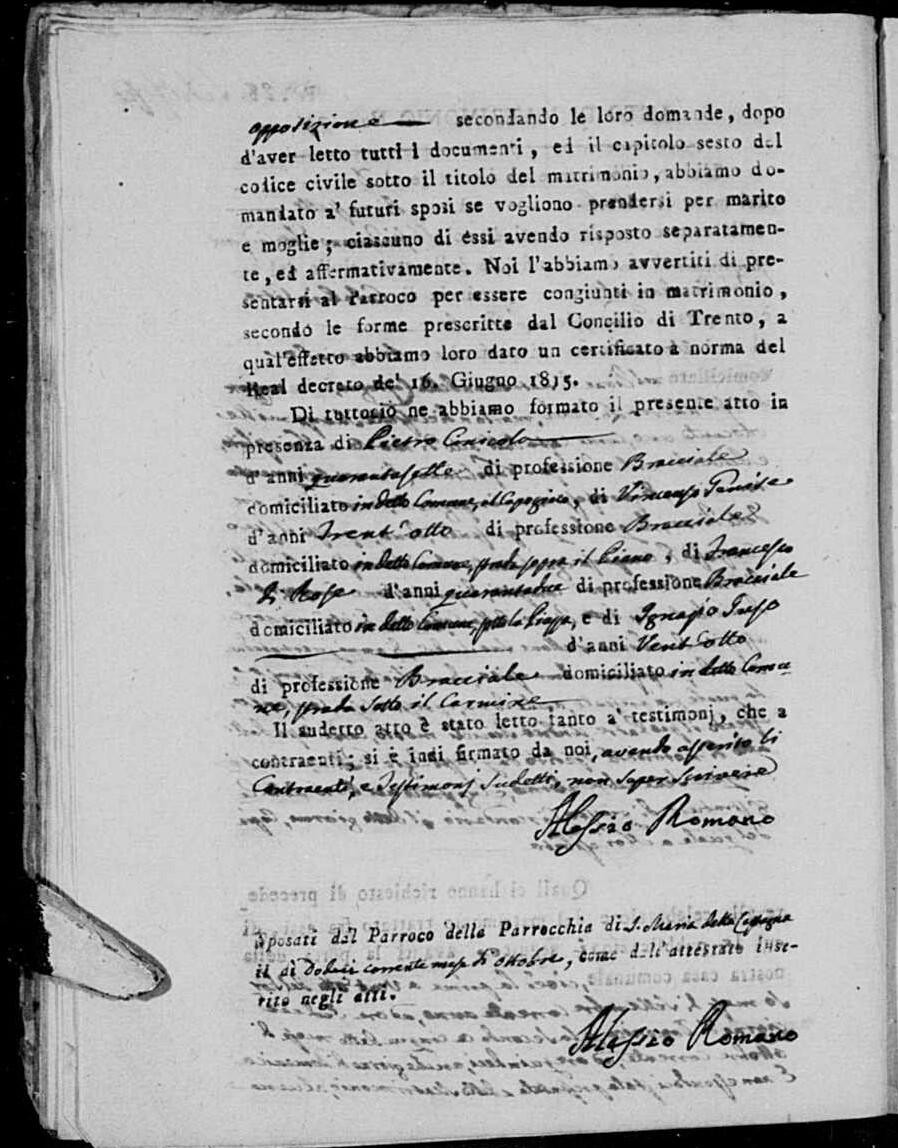 opposizione secondando le loro domande, dopo
d'aver letto tutti i documenti, ed il capitolo sesto del
codice civile sotto il titolo del matrimonio, abbiamo do-
mandato a' futuri sposi se vogliono prendersi per marito
e moglie; ciascuno di essi avendo risposto separatamen-
te, ed affermativamente. Noi l'abbiamo avvertiti di pre-
sentarsi al Parroco per essere congiunti in matrimonio,
secondo le forme prescritte dal Concilio di Trento, a
qual'effetto abbiamo loro dato un certificato a norma del
Real decreto de' 16. Giugno 1815.
Di tuttociò ne abbiamo formato il presente atto in
presenza di Pietro
d'anni quarantasette di professione Bracciale
domiciliato in detto Comune, di Vincenzo
d'anni Trent'otto di professione Bracciale
domiciliato in detto Comune, strada sopra il Piano, di Francesco
di Rosa d'anni quarantadue di professione Bracciale
domiciliato in detto Comune, sotto la Piazza, e di Ignazio
d'anni Vent'otto
di professione Bracciale domiciliato in detto Comu-
ne, strada sotto il Carmine
Il sudetto atto è stato letto tanto a' testimonj, che a
contraenti; si è indi firmato da noi, avendo asserito li
Contraenti, e Testimonj sudetti, non saper scrivere
Alessio Romano
Sposati dal Parroco della Parrocchia di S. Maria della
il di Dodeci corrente mese di ottobre, come dall'attestato inse-
rito negli atti.
Alessio Romano